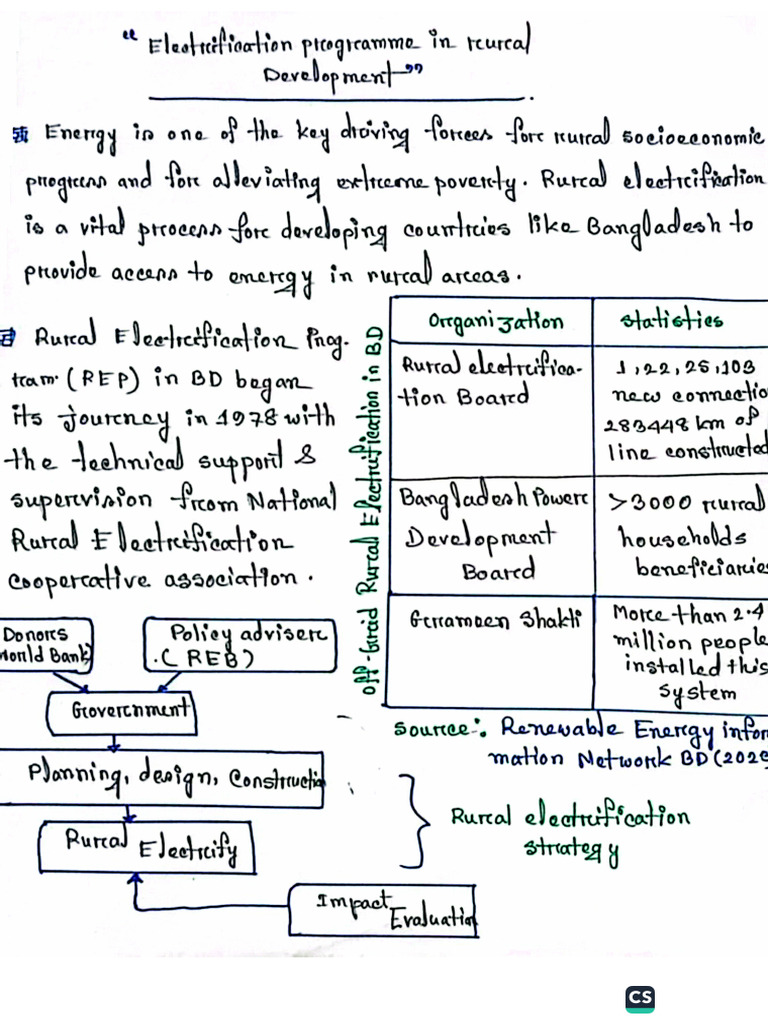 "Electrification programme in rural
Development"
Energy is one of the key driving forces for rural socioeconomic
progress and for alleviating extreme poverty. Rural electrification
is a vital process for developing countries like Bangladesh to
provide access to energy in rural areas.
Rural Electrification Prog-
ram (REP) in BD began
its journey in 1978 with
the technical support &
supervision from National
Rural Electrification
cooperative association.
Donors
World Bank)
Policy adviser
(REB)
Government
Planning, design, Construction
Rural Electricity
Impact
Evaluation
Off-Grid Rural Electrification in BD
Organization
Statistics
Rural electrifica-
tion Board
1,22,25,103
new connectio
283448 km of
line constructed
Bangladesh Power
Development
Board
>3000 rural
households
beneficiaries
Grameen Shakti
More than 2.4
million people
installed this
system
Source: Renewable Energy infor
mation Network BD
Rural electrification
strategy
CS